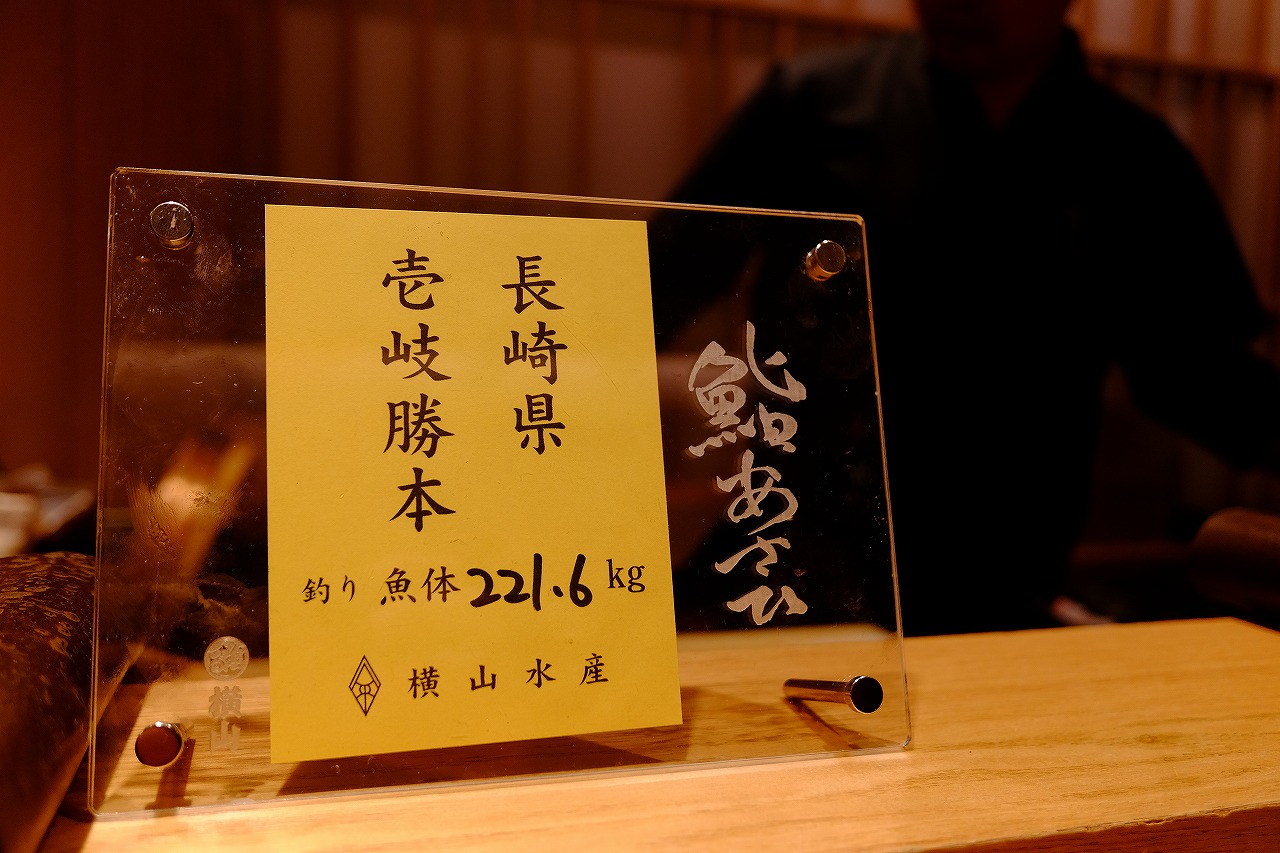 長崎県
壱岐勝本
釣り 魚体 221.6 kg
横山水産
鮨あさひ
横山